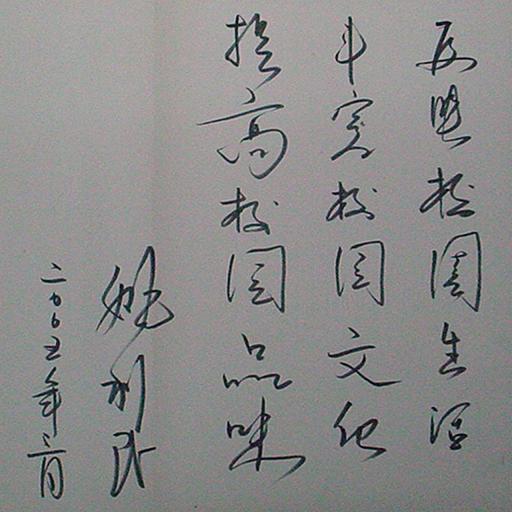 反映校园生活
丰富校园文化
提高校园品味
姚利民
二〇〇五年三月